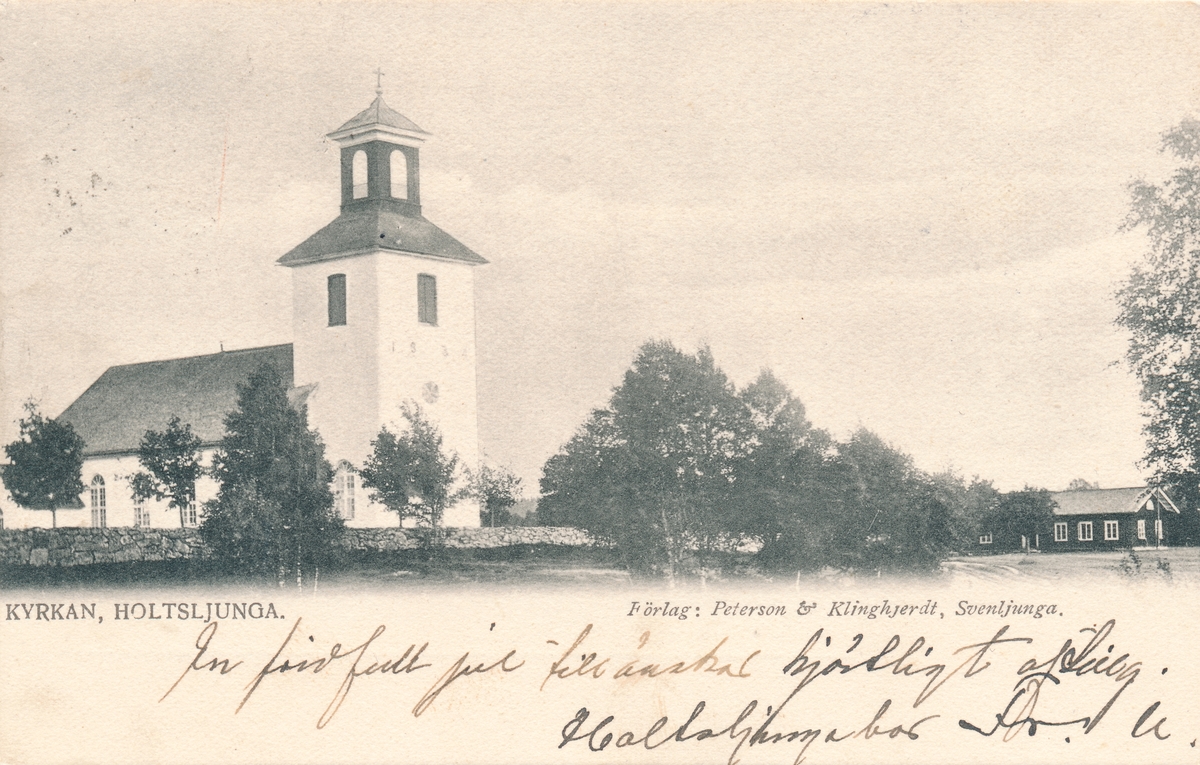 133
KYRKAN, HOLTSLJUNGA.
Förlag: Peterson & Klinghjerdt, Svenljunga.
En fridfull jul tillönskas hjärtligt af
Holtsljungabor Fr. U.